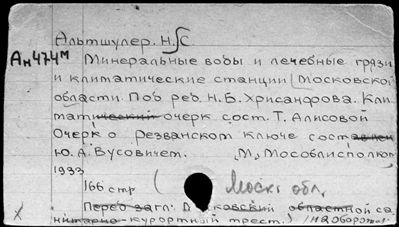 Альтшулер. Н.С
Ан474м Минеральные воды и лечебные грязи
и климатические станции Московской
области. Под ред. Н.Б. Хрисанфова. Кли
матический очерк сост. Т. Алисовой
Очерк о резванском ключе составлен
Ю. А. Вусовичем. М, Мособлисполком
1933
166 стр ( Моск. обл.
Перед загл: Московский областной са
нитарно-курортный трест.) (на обороте